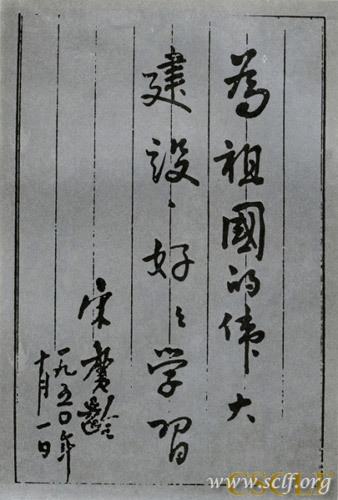 為祖國的伟大
建設、好々学習
宋慶齡
一九五〇年
十月一日
www.sclf.org
CSCLF